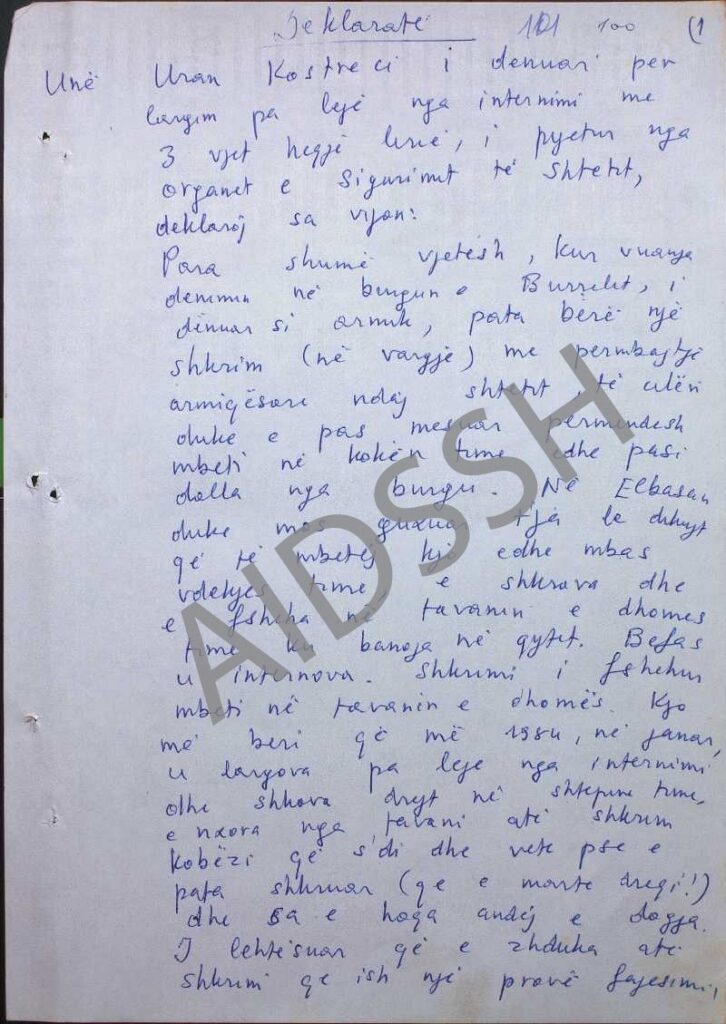 Deklaratë 101 100 (1
Unë Uran Kostreci i denuar per
largim pa lejë nga internimi me
3 vjet heqje lirie, i pyetur nga
organet e Sigurimit të Shtetit,
deklaroj sa vijon:
Para shumë vjetësh, kur vuanja
denimin në burgun e Burrelit, i
dënuar si armik, pata bërë një
shkrim (në vargje) me permbajtje
armiqësore ndaj shtetit, të cilën
duke e pas mesuar permendesh
mbeti në kokën time edhe pasi
dolla nga burgu. Në Elbasan
duke mos guxuar tja le
që të mbetej kjo edhe mbas
vdekjes time, e shkrova dhe
e fsheha në tavanin e dhomes
time ku banoja në qytet. Befas
u internova. Shkrimi i fshehur
mbeti në tavanin e dhomës. Kjo
më beri që më 1984, në janar,
u largova pa leje nga internimi
dhe shkova drejt në shtepine time,
e nxora nga tavani atë shkrim
kobëzi që s'di dhe vete pse e
pata shkruar (qe e marte dreqi!)
dhe sa e hoqa andej e dogja.
I lehtësuar që e zhduka atë
shkrimi qe ish një provë fajesimi,
AIDSSH